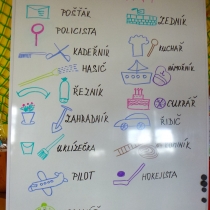 POŠŤÁK
ZEDNÍK
POLICISTA
KADEŘNÍK
KUCHAŘ
HASIČ
NÁMOŘNÍK
ŘEZNÍK
CUKRÁŘ
ZAHRADNÍK
ŘIDIČ
UKLÍZEČKA
PILOT
HOKEJISTA